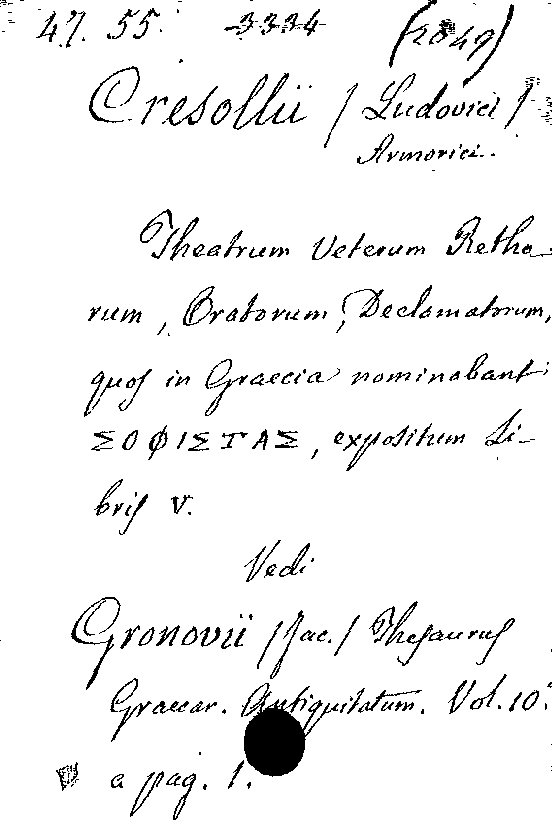 47. 55. 3334 (2049)
Cresollii / Ludovici /
Armorici.
Theatrum Veterum Retho-
rum, Oratorum, Declamatorum,
quos in Graecia nominabant
ΣΟΦΙΣΤΑΣ, expositum Li-
bris V.
Vedi
Gronovii / Jac. / Thesaurus
Graecar. Antiquitatum. Vol. 10.
a pag. 1.